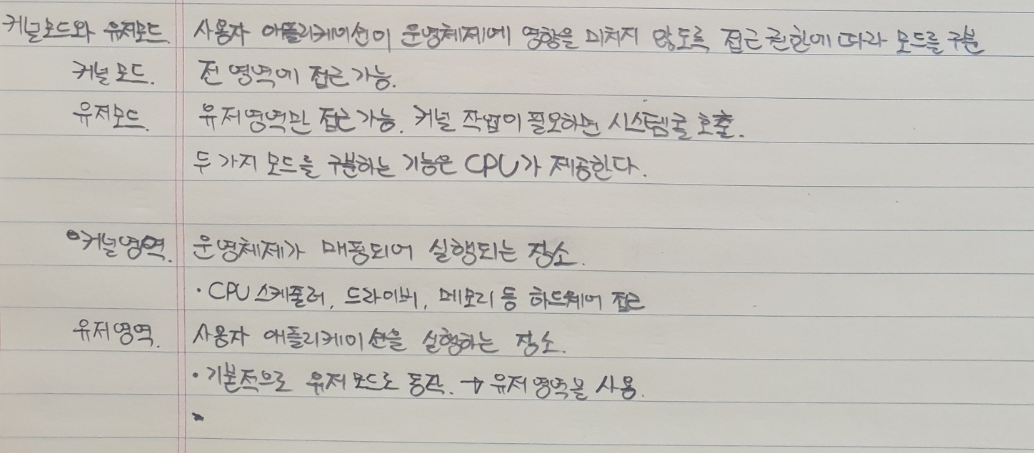 커널모드와 유저모드. 사용자 어플리케이션이 운영체제에 영향을 미치지 않도록 접근 권한에 따라 모드를 구분
커널모드. 전 영역에 접근 가능.
유저모드. 유저영역만 접근가능. 커널 작업이 필요하면 시스템콜 호출.
두 가지 모드를 구분하는 기능은 CPU가 제공한다.
•커널영역. 운영체제가 매핑되어 실행되는 장소.
·CPU스케줄러, 드라이버, 메모리 등 하드웨어 접근
유저영역. 사용자 어플리케이션을 실행하는 장소.
·기본적으로 유저모드로 동작. → 유저영역을 사용.